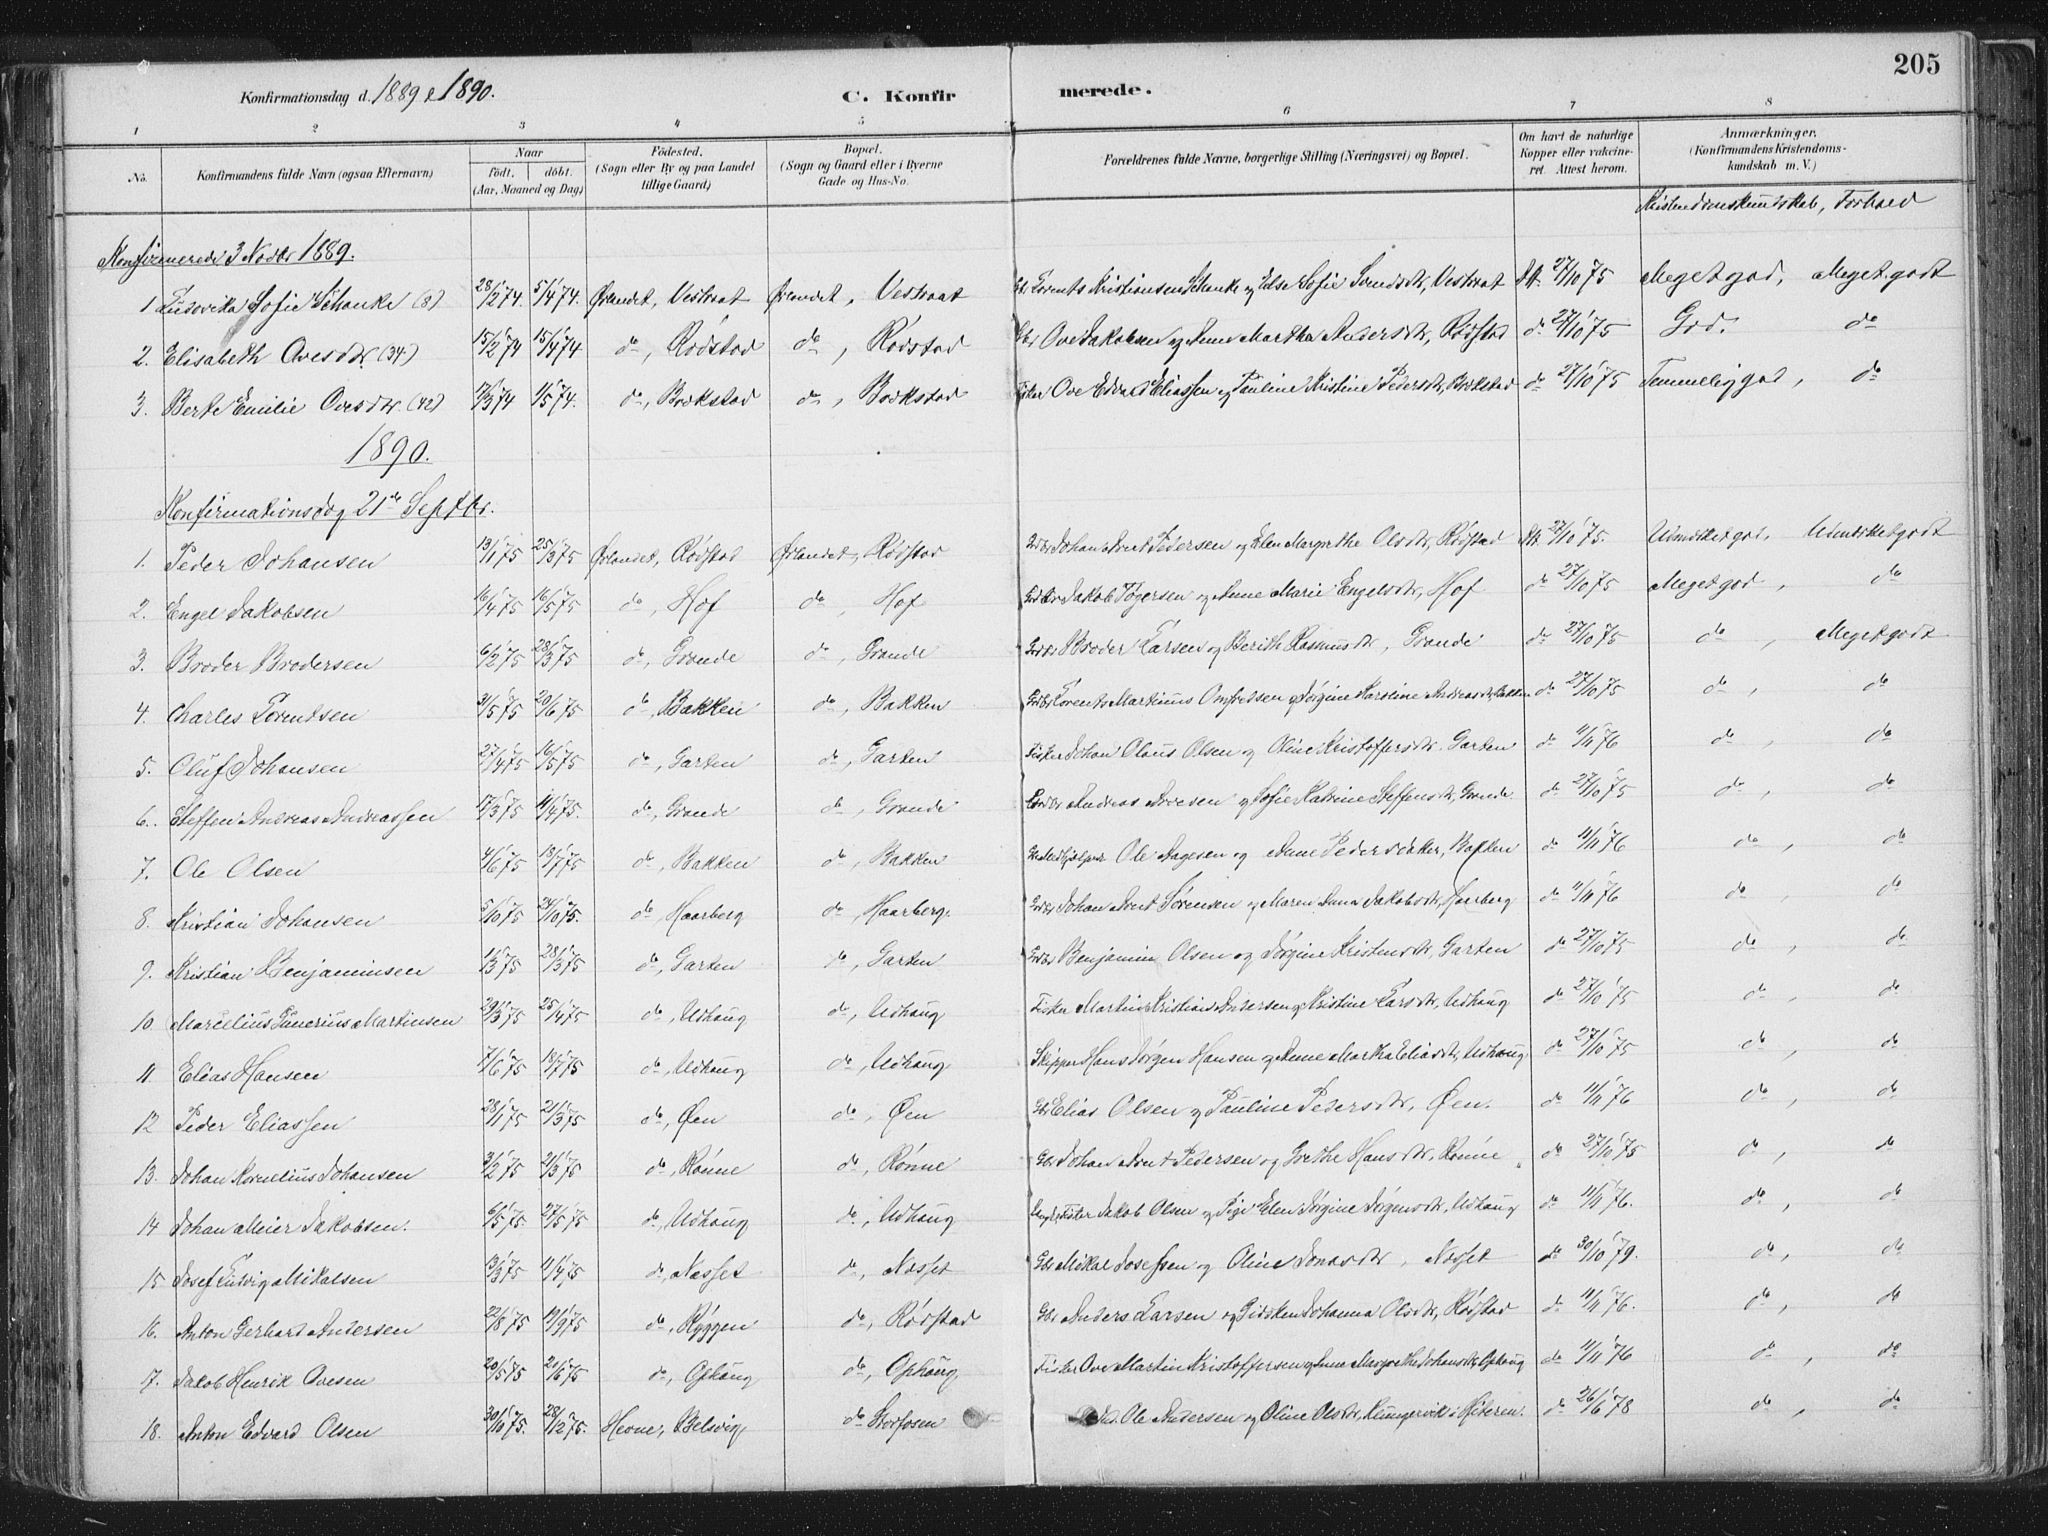 205
Konfirmationsdag d. 1889 & 1890. C. Konfirmerede.
1 2 3 4 5 6 7 8
No. Konfirmandens fulde Navn (ogsaa Efternavn) Naar født. døbt. (Aar, Maaned og Dag) Fødested. (Sogn eller By og paa Landet tillige Gaard) Bopæl. (Sogn og Gaard eller i Byerne Gade og Hus-No. Forældrenes fulde Navne, borgerlige Stilling (Næringsvei) og Bopæl. Om havt de naturlige Kopper eller vakcineret. Attest herom. Anmærkninger. (Konfirmandens Kristendomskundskab m. V.)
Kristendomskundskab, Forhold
Konfirmerede 3 Novbr 1889.
1 Ludovika Sofie Schanke (8) 28/2 74. 5/4 74. Ørlandet, Vestraat Ørlandet, Vestraat Lorents Kristiansen Schanke og Edse Sofie Svendsdtr, Vestraat Att. 27/10 75 Meget god, Meget godt
2. Elisabeth Ovesdtr. (34) 15/2 74 15/4 74 do, Rødstad do, Rødstad Gbr Ove Jakobsen og Anne Martha Andersdtr, Rødstad do 27/10 75 God. do
3. Berte Emilie Ovesdtr. (42) 17/3 74 1/5 74. do, Brekstad do, Brekstad Fisker Ove Edvard Eliassen og Pauline Kristine Pedersdtr, Brekstad do 27/10 75 Temmelig god, do
1890.
Konfirmationsdag 21de Septbr.
1. Peder Johansen 13/1 75 25/3 75 Ørlandet, Rødstad Ørlandet, Rødstad Johan Arnt Pedersen og Elen Margrethe Olsdtr, Rødstad Att. 27/10 75. Udmærket god, Udmærket godt
2. Engel Jakobsen 16/4 75 16/5 75 do, Hof do, Hof Jakob Tøgersen og Anne Marie Engelsdtr, Hof do 27/10 75 Meget god, do
3. Broder Brodersen 6/2 75 28/3 75 do, Grande do, Grande Broder Larsen og Berith Rasmusdtr, Grande do 27/10 75 do, Meget godt
4. Charles Lorentsen 31/5 75 20/6 75 do, Bakken do, Bakken Lorents Martinus Ongselsen og Jørgine Karoline Andreasdtr, Bakken do 27/10 75 do, do
5. Oluf Johansen 27/4 75 16/5 75 do, Garten do, Garten Fisker Johan Olaus Olsen og Oline Kristoffersdtr. Garten do 11/11 76 do, do
6. Steffen Andreas Andreassen 17/3 75 11/4 75. do, Grande do, Grande Andreas Arnesen og Sofie Katrine Steffensdtr, Grande do 27/10 75 do, do
7. Ole Olsen 4/6 75 18/7 75 do, Bakken do, Bakken Ole Aagesen og Anne Pedersdatter, Bakken do 11/11 76 do, do
8. Kristian Johansen 5/10 75 24/10 75. do, Haarberg do, Haarberg. Johan Arnt Sørensen og Maren Anna Jakobsdtr, Haarberg do 11/11 76 do, do
9. Kristian Benjaminsen 1/3 75 28/3 75 do, Garten do, Garten Benjamin Olsen og Jørgine Kristensdtr, Garten do 27/10 75 do, do
10. Marcelius Gunerius Martinsen 29/3 75 25/4 75 do, Udhaug do, Udhaug Fisker Martin Kristian Andersen og Kristine Larsdtr, Udhaug do 27/10 75 do, do
11. Elias Hansen 7/6 75 18/7 75 do, Udhaug do, Udhaug Skipper Hans Jørgen Hansen og Anne Martha Eliasdtr, Udhaug do 27/10 75 do, do
12 Peder Eliassen 28/1 75 21/3 75 do, Øen do, Øen Gbr Elias Olsen og Pauline Pedersdtr, Øen. do 11/11 76 do, do
13. Johan Kornelius Johansen 3/2 75 21/3 75 do, Rønne do, Rønne Gbr Johan Arnt Pedersen og Grethe Hansdtr, Rønne do 27/10 75 do, do
14 Johan Meier Jakobsen. 6/5 75 27/5 75 do, Udhaug do, Udhaug Jakob Olsen og Pige Elen Jørgine Jørgensdtr, Udhaug do 11/11 76. do, do
15 Josef Ludvig Mikalsen 13/3 75 11/4 75 do, Næsset do, Næsset Gbr Mikal Josefsen og Oline Jonasdtr, Næsset do 30/10 79. do, do
16. Anton Gerhard Andersen 22/8 75 19/9 75 do, Ryggen do, Rødstad Gbr Anders Larsen og Gidsken Johanna Olsdtr, Rødstad do 11/11 76. do, do
17. Jakob Henrik Ovesen 20/5 75 20/6 75 do, Ophaug do, Ophaug, Fisker Ove Martin Kristoffersen og Anne Margrethe Johansdtr, Ophaug do 11/11 76 do, do
18. Anton Edvard Olsen 30/10 75. 28/12 75. Hevne, Belsvig do Storfosen Ole Andersen og Oline Olsdtr, Kungervik i Hiteren. do 26/6 78 do, do